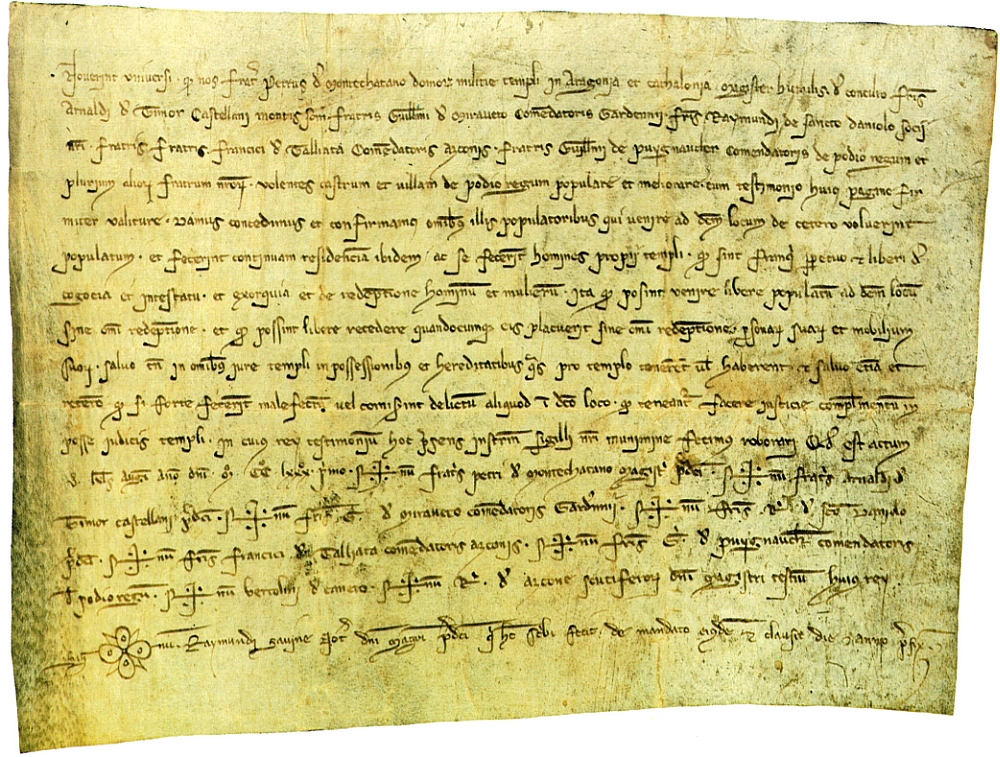 Noverint universi · qd nos frat' Petrus d' Montechatano domor' militie templi in Aragonia et Cathalonia magister humilis, d' consilio fr̄is
Arnaldi d' Timor Castellani montissoni fratris Guill̄mi d' Miraveto Comēdatoris Gardennii · fr̄is Raymundi de Sancto daniolo socii
nr̄i · fratris · fratris · francici d' Talliata Comēdatoris arconis · fratris Guill̄mi de puygnaucher comendatoris de podio regum et
plurium alior' fratrum nr̄or' · volentes castrum et villam de podio regum populare et meliorare · cum testimonio huiq pagine fir
miter valiture · Damus concedimus et confirmamus omībus illis populatoribus qui venire ad dc̄m locum de cetero voluerint
populatum · et fecerint continuam residenciā ibidem, ac se fecerīt homines propii templi · qd sint franq' ppetuo et liberi d'
cogocia et intestatu · et exorquia et de redēptione hominū et mulierū · Ita qd posint venire libere populatū ad dc̄m locū
sine om̄i redēptione · et qd possint libere recedere quandocumq eis placuerit sine om̄i redēptione psonar' suar' et mobilium
suor' · salvo tn̄ in omībus jure templi in possessionibus et hereditatibus q̄s pro templo tenerēt ul' haberent et salvo eciā et
retēto qd si forte fecerīt malefectū vel comisint delictū aliquod ī dc̄o loco · qd teneant' facere iusticie complmentū in
posse iudicis templi · In cuius rey testimoniū hoc p̄sens instrm̄ sigilli nr̄i munimine fecimus roborari Qd' est actum
kl̄s aug̃i año dn̄i · mo · CCo · lxxxo p̄mo · Sig+num frat̄s petri d' Montechatano magist' p̄dc̄i Sig+num frat̄s arnaldi d'
Timor castellani p̄dc̄i · Sig+num fr̄is G. d' Miraveto comēdatoris Gardēnii · Sig+num fr̄is R. d' sc̄o Daniolo
p̄dc̄i · Sig+num fr̄is francici d' Talliata comēdatoris arconis · Sig+num fr̄is G. d' puygnaucher comendatoris
d' podio regū · Sig+num bertolini d' caneto · Sig+num R. d' arcone scutiferor' dn̄i magistri testiū huius rey
Sig num Raymundi Gavine Not' dn̄i mag̃ri p̄dc̄i q hc̄ sc̄bi fecit · de mandato eiqdē et clausit die et anno p̄fix